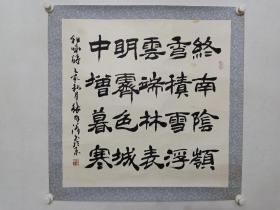 終南陰嶺
秀積雪浮
雲端林表
明霽色城
中增暮寒
祖咏詩 乙未秋月